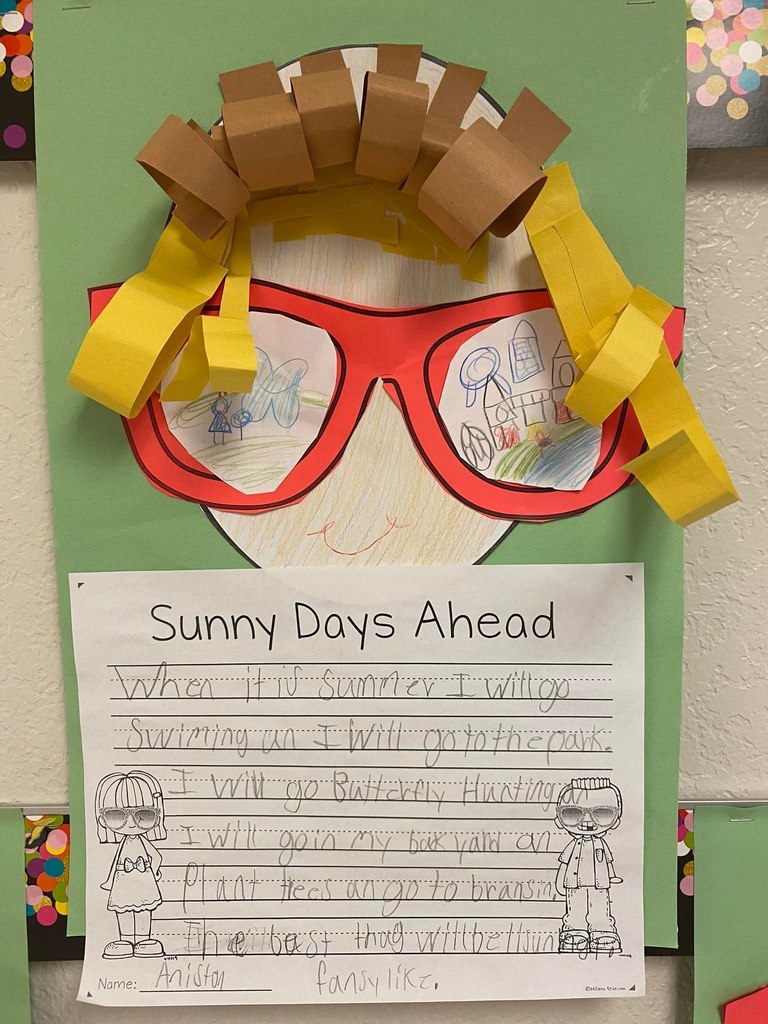 Sunny Days Ahead
When it is summer I will go
Swiming an I Will go to the park.
I will go Butterfly Hunting an
I will go in my back yard an
Plant trees an go to bransin.
The best thag will be
Name: Aniston fansy like.